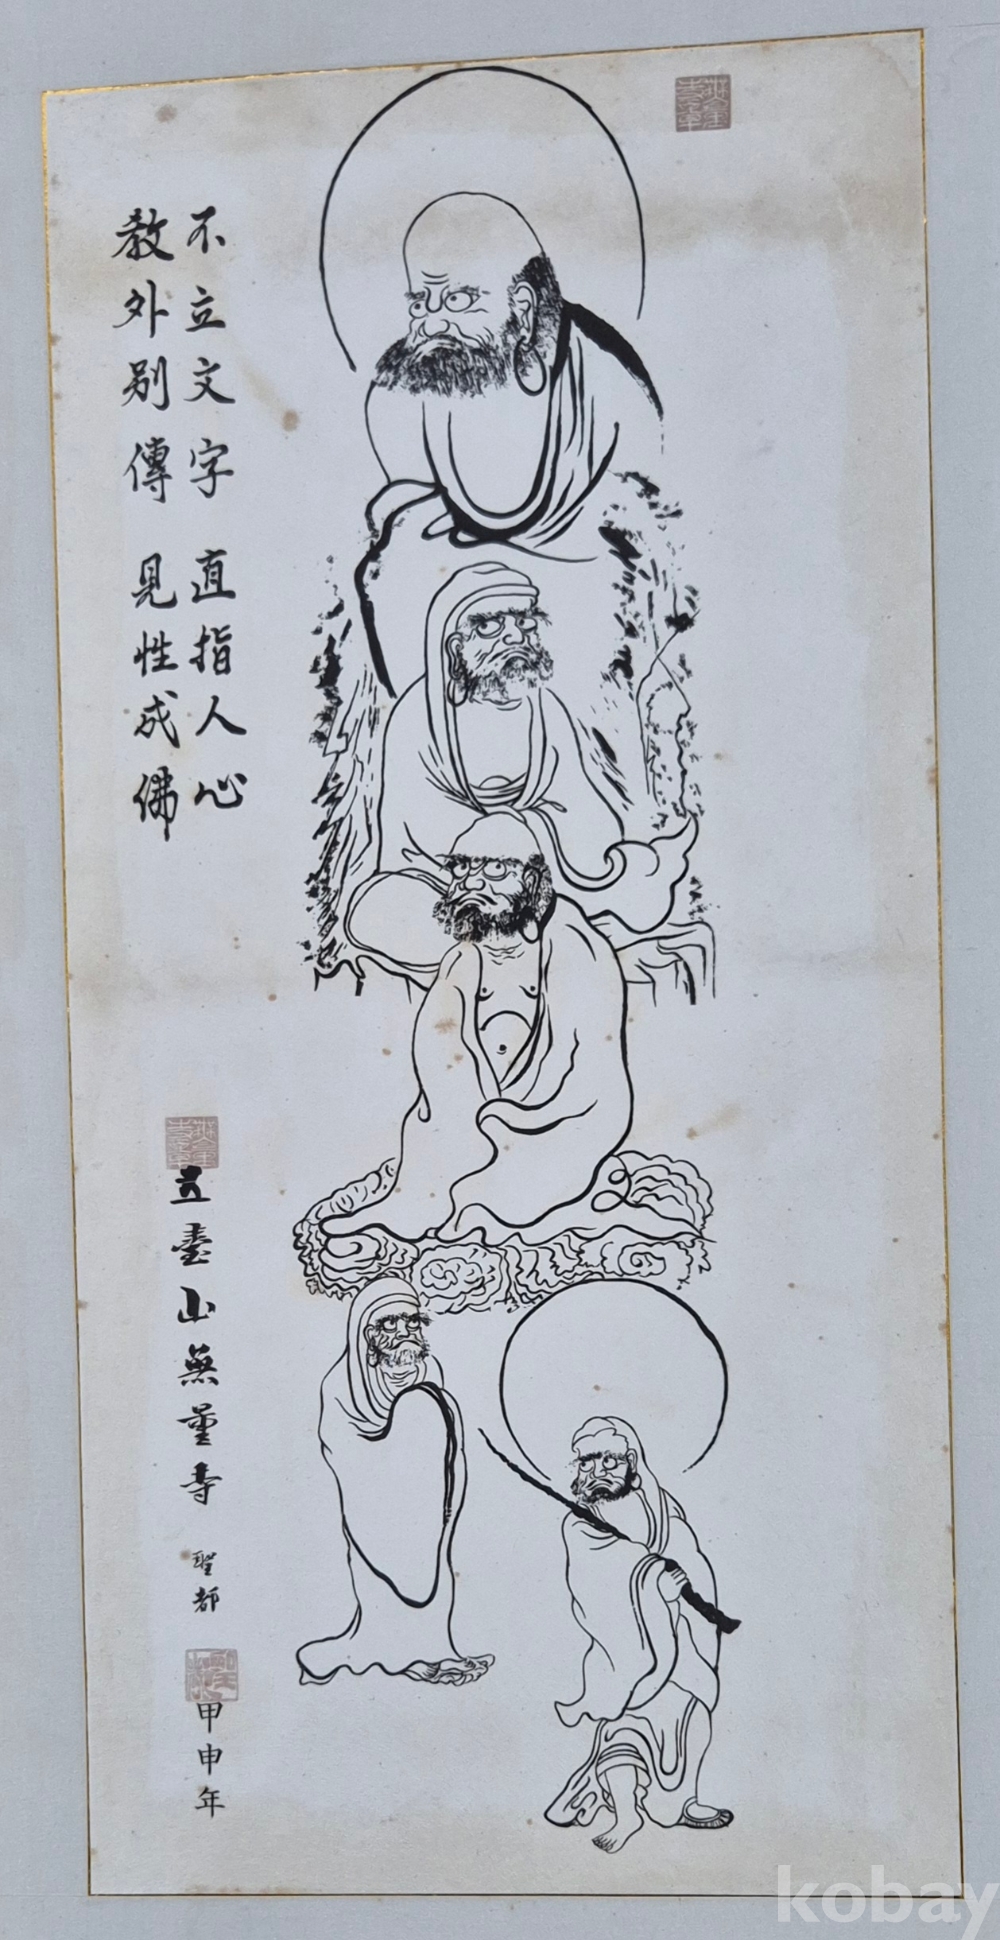 不立文字 直指人心
教外別傳 見性成佛
五臺山無量寺 聖都
甲申年
kobay